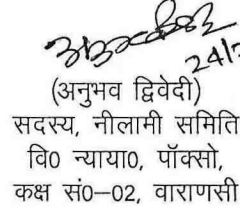 24/
(अनुभव द्विवेदी)
सदस्य, नीलामी समिति
वि0 न्याया0, पॉक्सो,
कक्ष सं0–02, वाराणसी